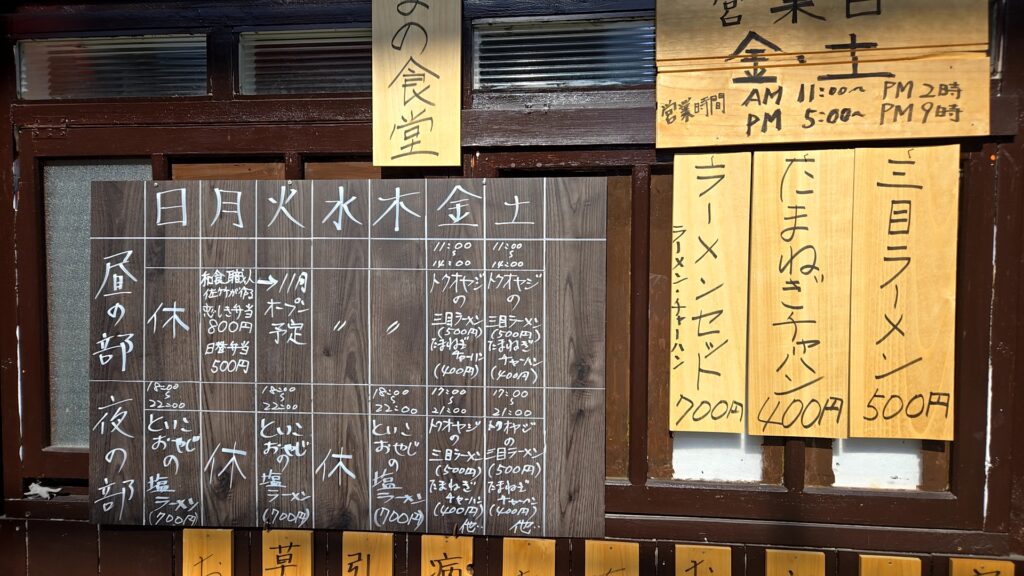 の食堂
営業日
金・土
営業時間
AM 11:00~ PM 2時
PM 5:00~ PM 9時
三目ラーメン
500円
たまねぎチャハン
400円
ラーメンセット
ラーメン・チャーハン
700円
日 月 火 水 木 金 土
昼の部
休
800円
日替弁当
500円
→11月
オープン
予定
〃
〃
11:00
~
14:00
トクオヤジ
の
三目ラーメン
(500円)
たまねぎ
チャーハン
(400円)
11:00
~
14:00
トクオヤジ
の
三目ラーメン
(500円)
たまねぎ
チャーハン
(400円)
夜の部
18:00
~
22:00
といこ
おやじ
の
塩
ラーメン
(700円)
休
18:00
~
22:00
といこ
おやじ
の
塩
ラーメン
(700円)
休
18:00
~
22:00
といこ
おやじ
の
塩
ラーメン
(700円)
17:00
~
21:00
トクオヤジ
の
三目ラーメン
(500円)
たまねぎ
チャーハン
(400円)
他..
17:00
~
21:00
トクオヤジ
の
三目ラーメン
(500円)
たまねぎ
チャーハン
(400円)
他..
草
引
病